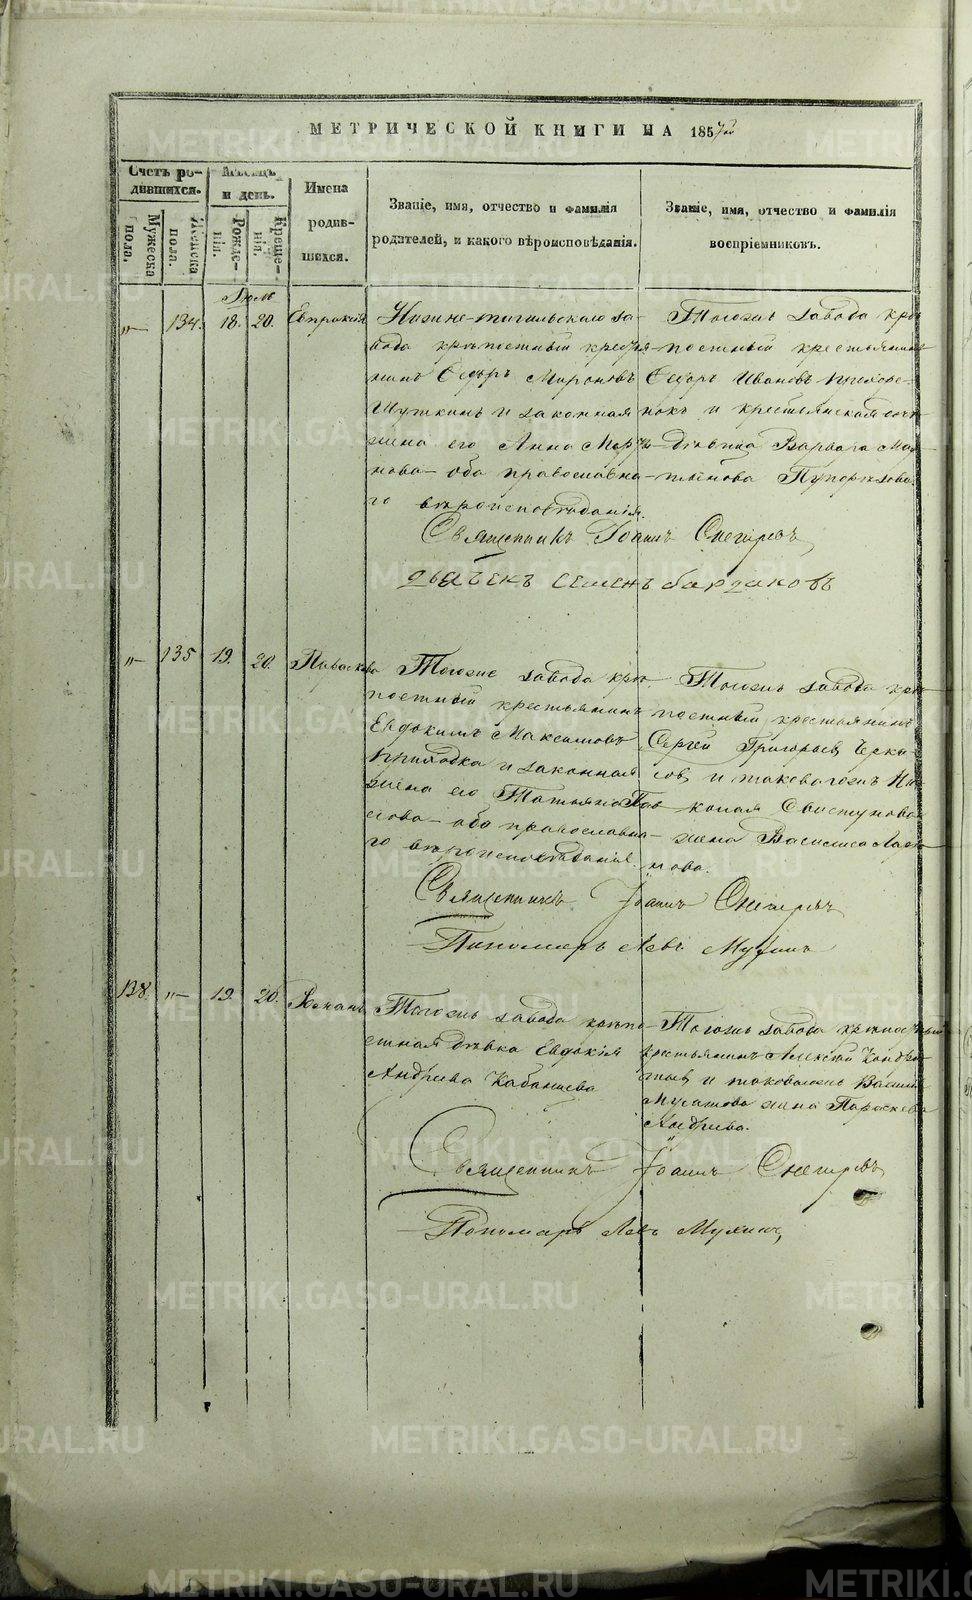 МЕТРИЧЕСКОЙ КНИГИ НА 185
Счетъ ро-
дившихся.
Мужеска пола.
Женска пола.
Мѣсяцъ
и день.
Рожде-
нія.
Креще-
нія.
Имена
родив-
шихся.
Званіе, имя, отчество и фамилія
родителей, и какого вѣроисповѣданія.
Званіе, имя, отчество и фамилія
воспріемниковъ.
Іюль
„— 134. 18. 20. Евпраксія
Нижне-тагильскаго за-
вода крѣпостный крестья-
нинъ Ѳедоръ Мироновъ
Шуткинъ и законная
жена его Анна Март
нова — оба православна-
го вѣроисповѣданія.
Тогожъ завода крѣ-
постный крестьянинъ
Ѳедоръ Ивановъ
и крестьянская
дѣвка Варвара
Священникъ Іоаннъ Снегиревъ
дьячекъ семенъ бардаковъ
„— 135 19. 20. Параскева
Тогоже завода крѣ-
постный крестьянинъ
Евдокимъ Максимовъ
Приходка и законная
жена его Татьяна
оба православна-
го вѣроисповѣданія.
Тогожъ завода крѣ-
постный крестьянинъ
Сергѣй Григорьевъ Черка-
совъ и таковагожъ Ни-
колая Свистунова
жена Василиса
Священникъ Іоаннъ Снегиревъ
Пономарь Левъ Мухинъ
138. „— 19. 20.
Тогожъ завода крѣпо-
стная дѣвка Евдокія
Андреева Кабанцева
Тогожъ завода крѣпостный
крестьянинъ Алексѣй Кондра-
тьевъ и таковагожъ Василья
Мусатова жена Параскева
Андреева.
Священникъ Іоаннъ Снегиревъ
Пономарь Левъ Мухинъ
METRIKI.GASO-URAL.RU